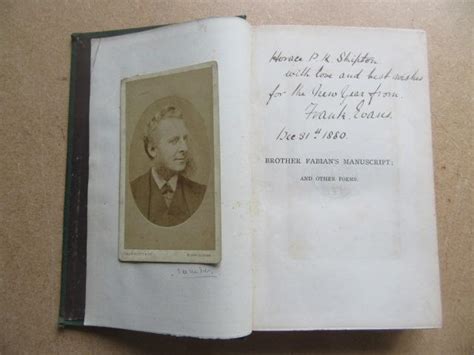 Horace P. K. Shipton
with love and best wishes
for the New Year from
Frank Evans.
Dec 31st 1880.
BROTHER FABIAN'S MANUSCRIPT;
AND OTHER POEMS.